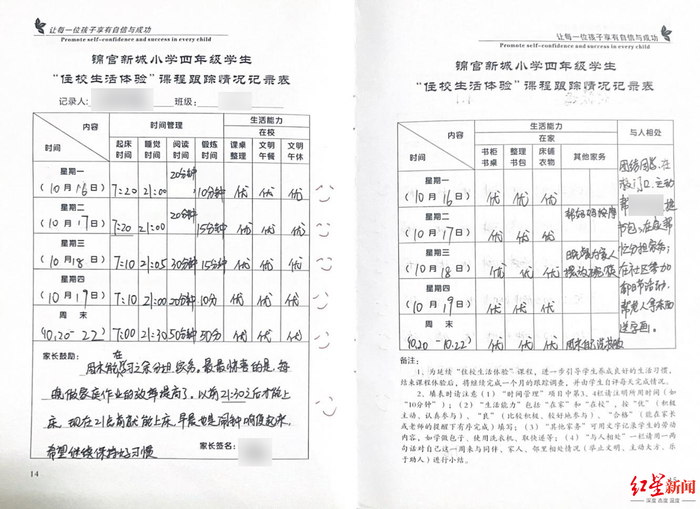 让每一位孩子享有自信与成功
Promote self-confidence and success in every child
锦官新城小学四年级学生
“住校生活体验”课程跟踪情况记录表
记录人: 班级:
内容 时间管理 生活能力
在校
时间 起床时间 睡觉时间 阅读时间 锻炼时间 课桌整理 文明午餐 文明午休
星期一
(10月16日) 7:20 21:00 20分钟 10分钟 优 优 优
星期二
(10月17日) 7:20 21:00 20分钟 15分钟 优 优 优
星期三
(10月18日) 7:10 21:05 30分钟 15分钟 优 优 优
星期四
(10月19日) 7:10 21:00 20分钟 10分 优 优 优
周末
(10.20-22) 7:00 21:30 50分钟 50分 优 优 优
家长鼓励:
周末在学习之余分担家务。最最惊喜的是,每
晚做家庭作业的效率提高了。以前21:30之后才能上
床,现在21点前就能上床,早晨也是闹钟响便起床。
希望继续保持好习惯
家长签名:
14
让每一位孩子享有自信与成功
Promote self-confidence and success in every child
锦官新城小学四年级学生
“住校生活体验”课程跟踪情况记录表
内容 生活能力 与人相处
在家
时间 书柜书桌 整理书包 床铺衣物 其他家务
星期一
(10月16日) 优 优 优
星期二
(10月17日) 优 优 优 帮奶奶按摩
星期三
(10月18日) 优 优 优
星期四
(10月19日) 优 优 优
周末
(10.20-10.22) 优 优 优
团结同学,在
主动
帮 提
书包,在家帮
忙分担家务;
在社区参加
活动,
帮老人拿东西
送字画。
备注:
1、为延续“住校生活体验”课程,进一步引导学生养成良好的生活习惯,
结束课程体验后,将继续完成一个月的跟踪调查,并由学生自评每天完成情况。
2、填表时请注意(1)“时间管理”项目中第3、4栏请注明所用时间(如
“10分钟”);(2)“生活能力”包括“在家”和“在校”,按“优”(积极
主动、认真参与)、“良”(比较积极、较好地参与)、“合格”(能在家长
或老师的提醒下有序完成)填写;(3)“其他家务”可用文字记录学生的劳动
内容,如学做包子、使用洗衣机、取快递等;(4)“与人相处”一栏请用一两
句话对自己这一周来与同伴、家人、邻里相处情况(举止文明、主动大方、乐
于助人)进行小结。
红星新闻
深度 态度 温度